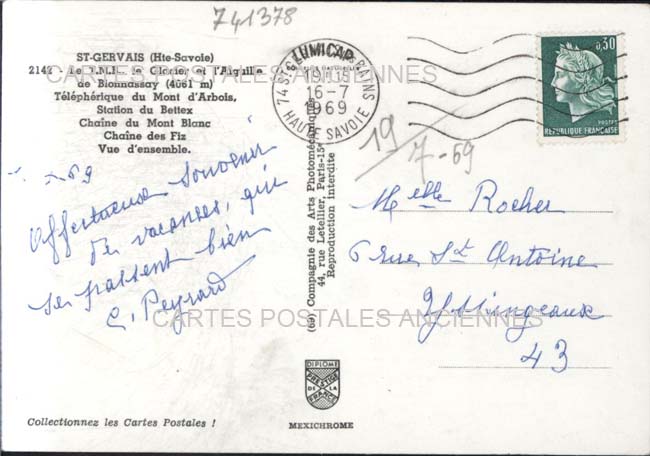 741378
ST-GERVAIS (Hte-Savoie)
2142 - Le T.M.B., le Glacier et l'Aiguille
de Bionnassay (4061 m)
Téléphérique du Mont d'Arbois,
Station du Bettex
Chaîne du Mont Blanc
Chaîne des Fiz
Vue d'ensemble.
CARTES POSTALES ANCIENNES
69
Affectueux souvenir
de vacances, qui
se passent bien
C. Peyrard
74 ST G LES BAINS
19H15
16-7
1969
HAUTE SAVOIE
0,30
POSTES
REPUBLIQUE FRANÇAISE
19
7-69
(69) Compagnie des Arts Photomécaniques
44, rue Letellier, Paris-15e
Reproduction interdite
Melle Rocher
6 rue St Antoine
Yssingeaux
43
CARTES POSTALES ANCIENNES
DIPLOME
PRESTIGE
DE LA
FRANCE
Collectionnez les Cartes Postales !
MEXICHROME